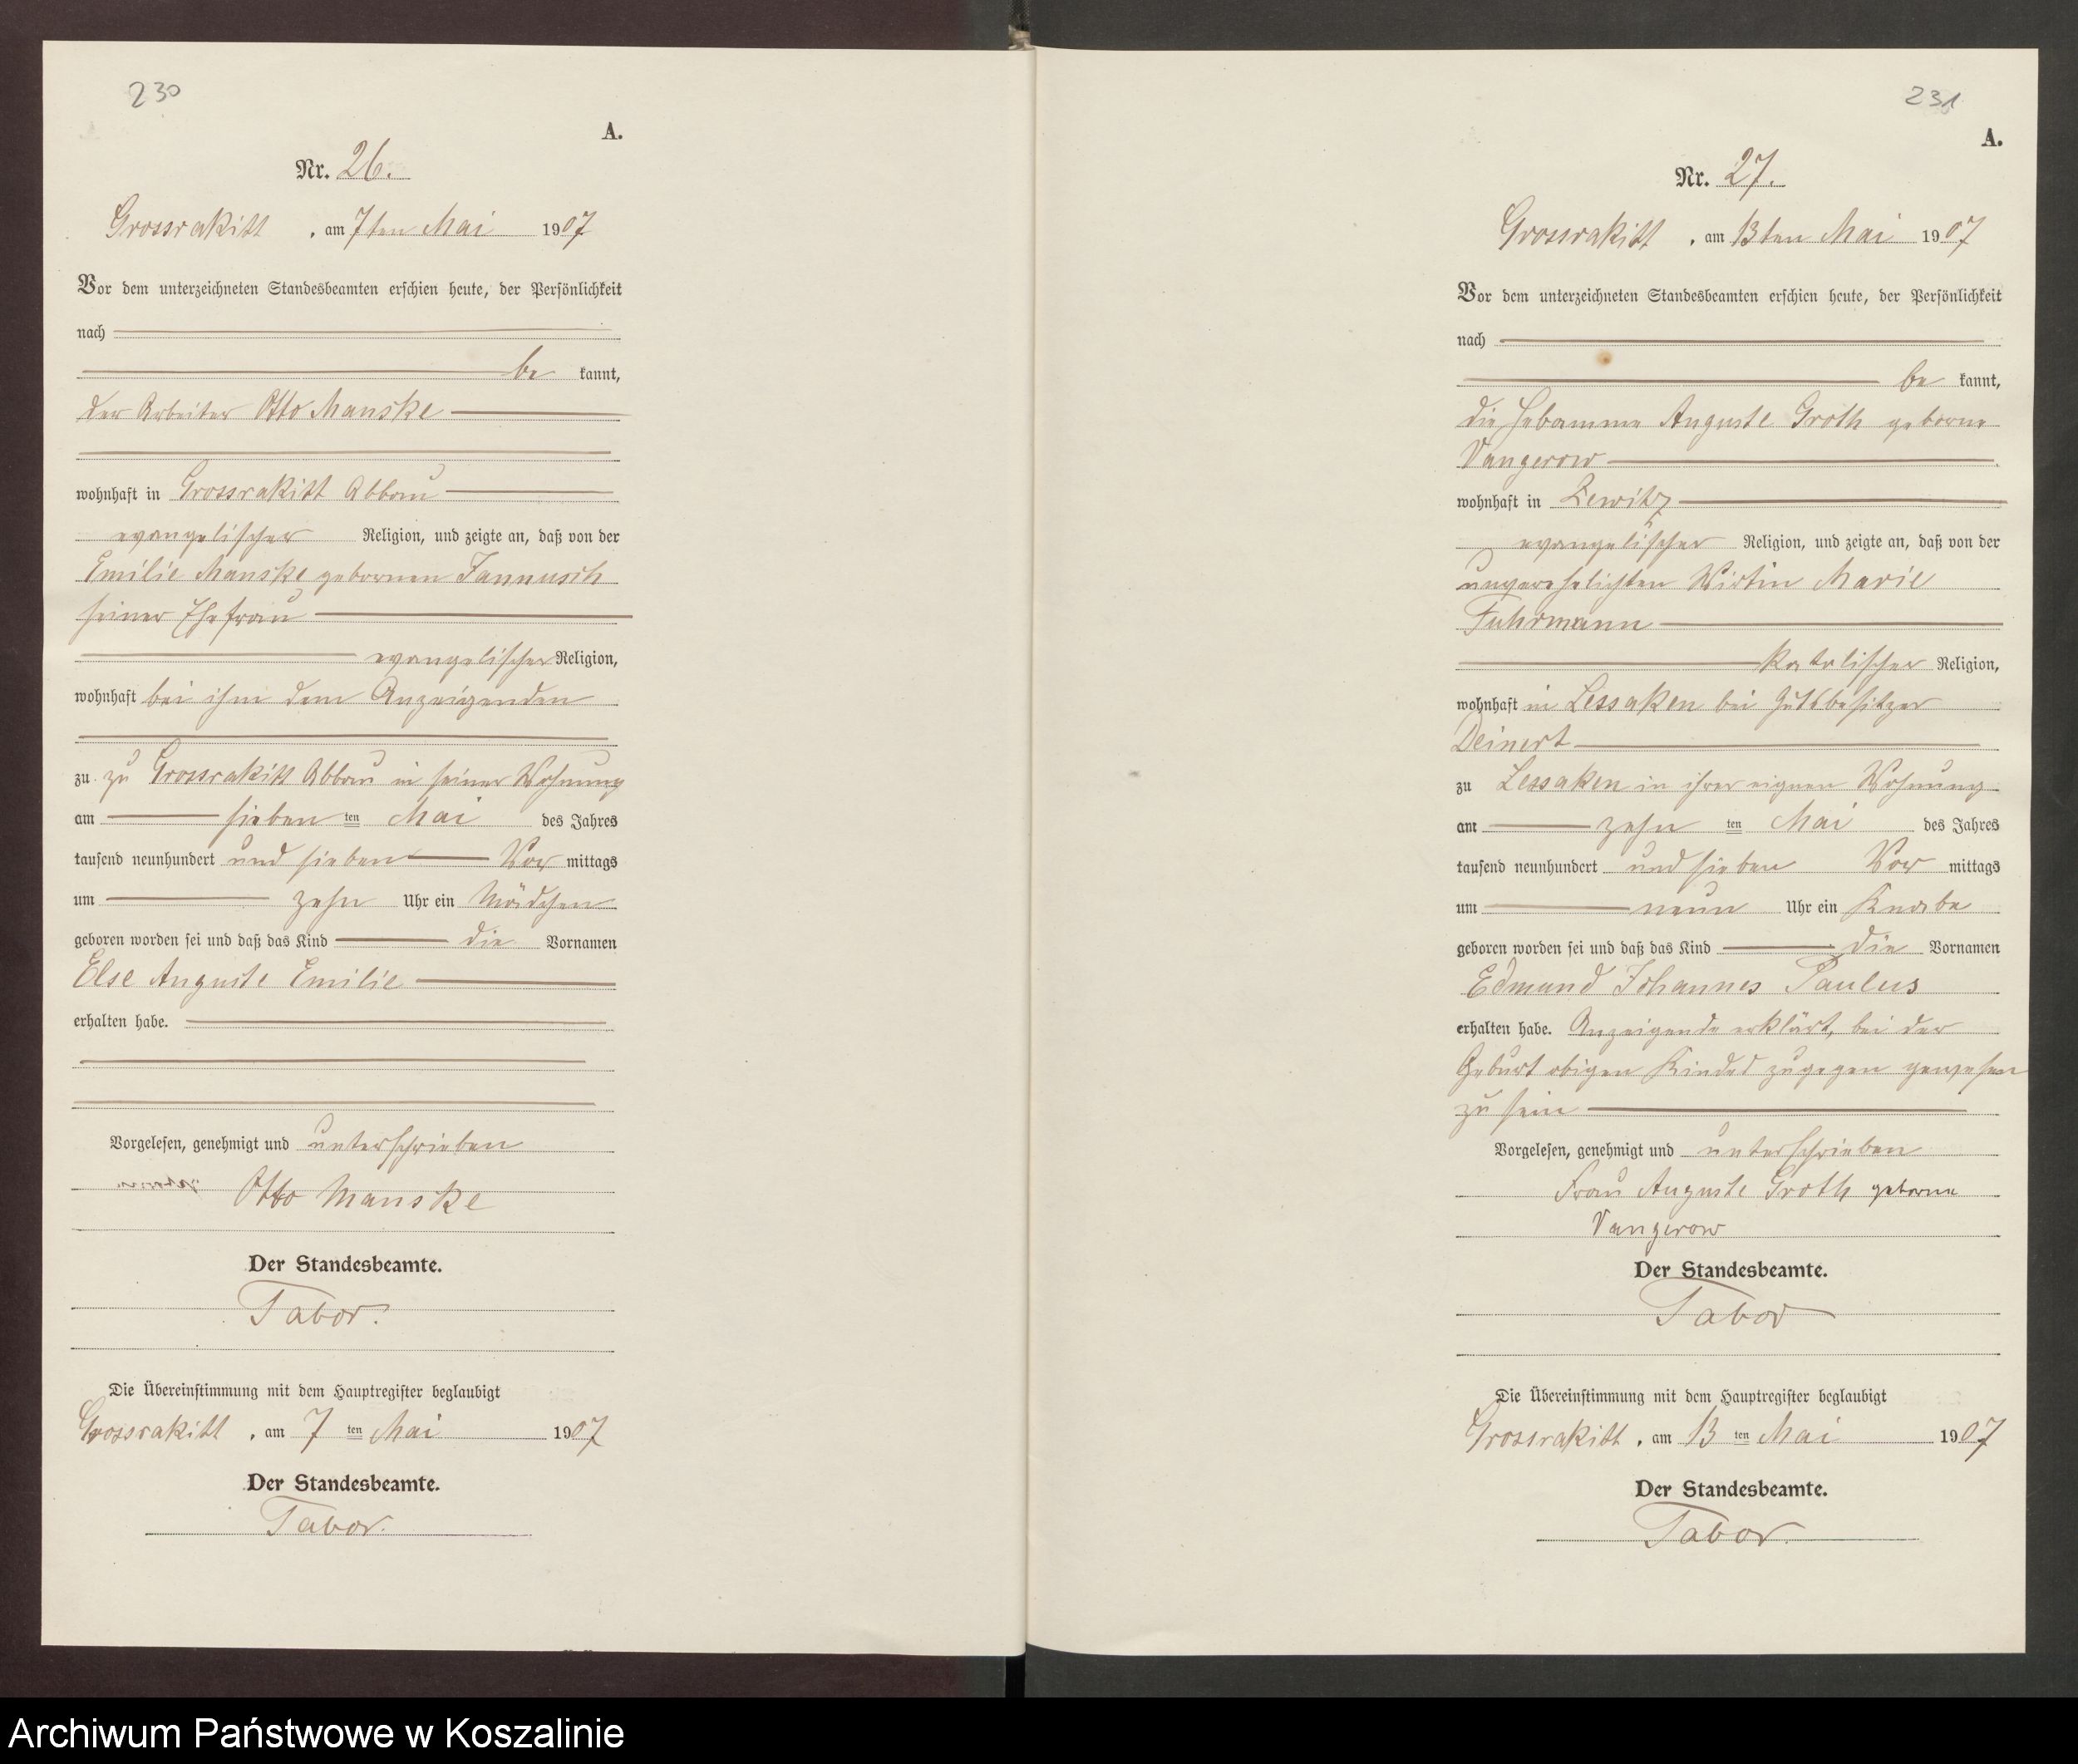 230
A.
Nr. 26.
Grossrakitt, am 7ten Mai 1907
Vor dem unterzeichneten Standesbeamten erschien heute, der Persönlichkeit
nach
be kannt,
der Arbeiter Otto Manske
wohnhaft in Grossrakitt Abbau
evangelischer Religion, und zeigte an, daß von der
Emilie Manske gebornen Jannusch
seiner Ehefrau
evangelischer Religion,
wohnhaft bei ihm dem Anzeigenden
zu zu Grossrakitt Abbau in seiner Wohnung
am sieben ten Mai des Jahres
tausend neunhundert und sieben Vor mittags
um zehn Uhr ein Mädchen
geboren worden sei und daß das Kind die Vornamen
Else Auguste Emilie
erhalten habe.
Vorgelesen, genehmigt und unterschrieben
Otto Manske
Der Standesbeamte.
Tabor.
Die Übereinstimmung mit dem Hauptregister beglaubigt
Grossrakitt, am 7 ten Mai 1907
Der Standesbeamte.
Tabor.
231
A.
Nr. 27.
Grossrakitt, am 13ten Mai 1907
Vor dem unterzeichneten Standesbeamten erschien heute, der Persönlichkeit
nach
be kannt,
die Hebamme Auguste Groth geborne
Vangerow
wohnhaft in Zewitz
evangelischer Religion, und zeigte an, daß von der
unverehelichten Wirtin Marie
Fuhrmann
katolischer Religion,
wohnhaft in Lessaken bei Gutsbesitzer
Deinert
zu Lessaken in ihrer eignen Wohnung
am zehn ten Mai des Jahres
tausend neunhundert und sieben Vor mittags
um neun Uhr ein Knabe
geboren worden sei und daß das Kind die Vornamen
Edmund Johannes Paulus
erhalten habe. Anzeigende erklärt, bei der
Geburt obigen Kindes zugegen gewesen
zu sein
Vorgelesen, genehmigt und unterschrieben
Frau Auguste Groth geborne
Vangerow
Der Standesbeamte.
Tabor
Die Übereinstimmung mit dem Hauptregister beglaubigt
Grossrakitt, am 13 ten Mai 1907
Der Standesbeamte.
Tabor.
Archiwum Państwowe w Koszalinie